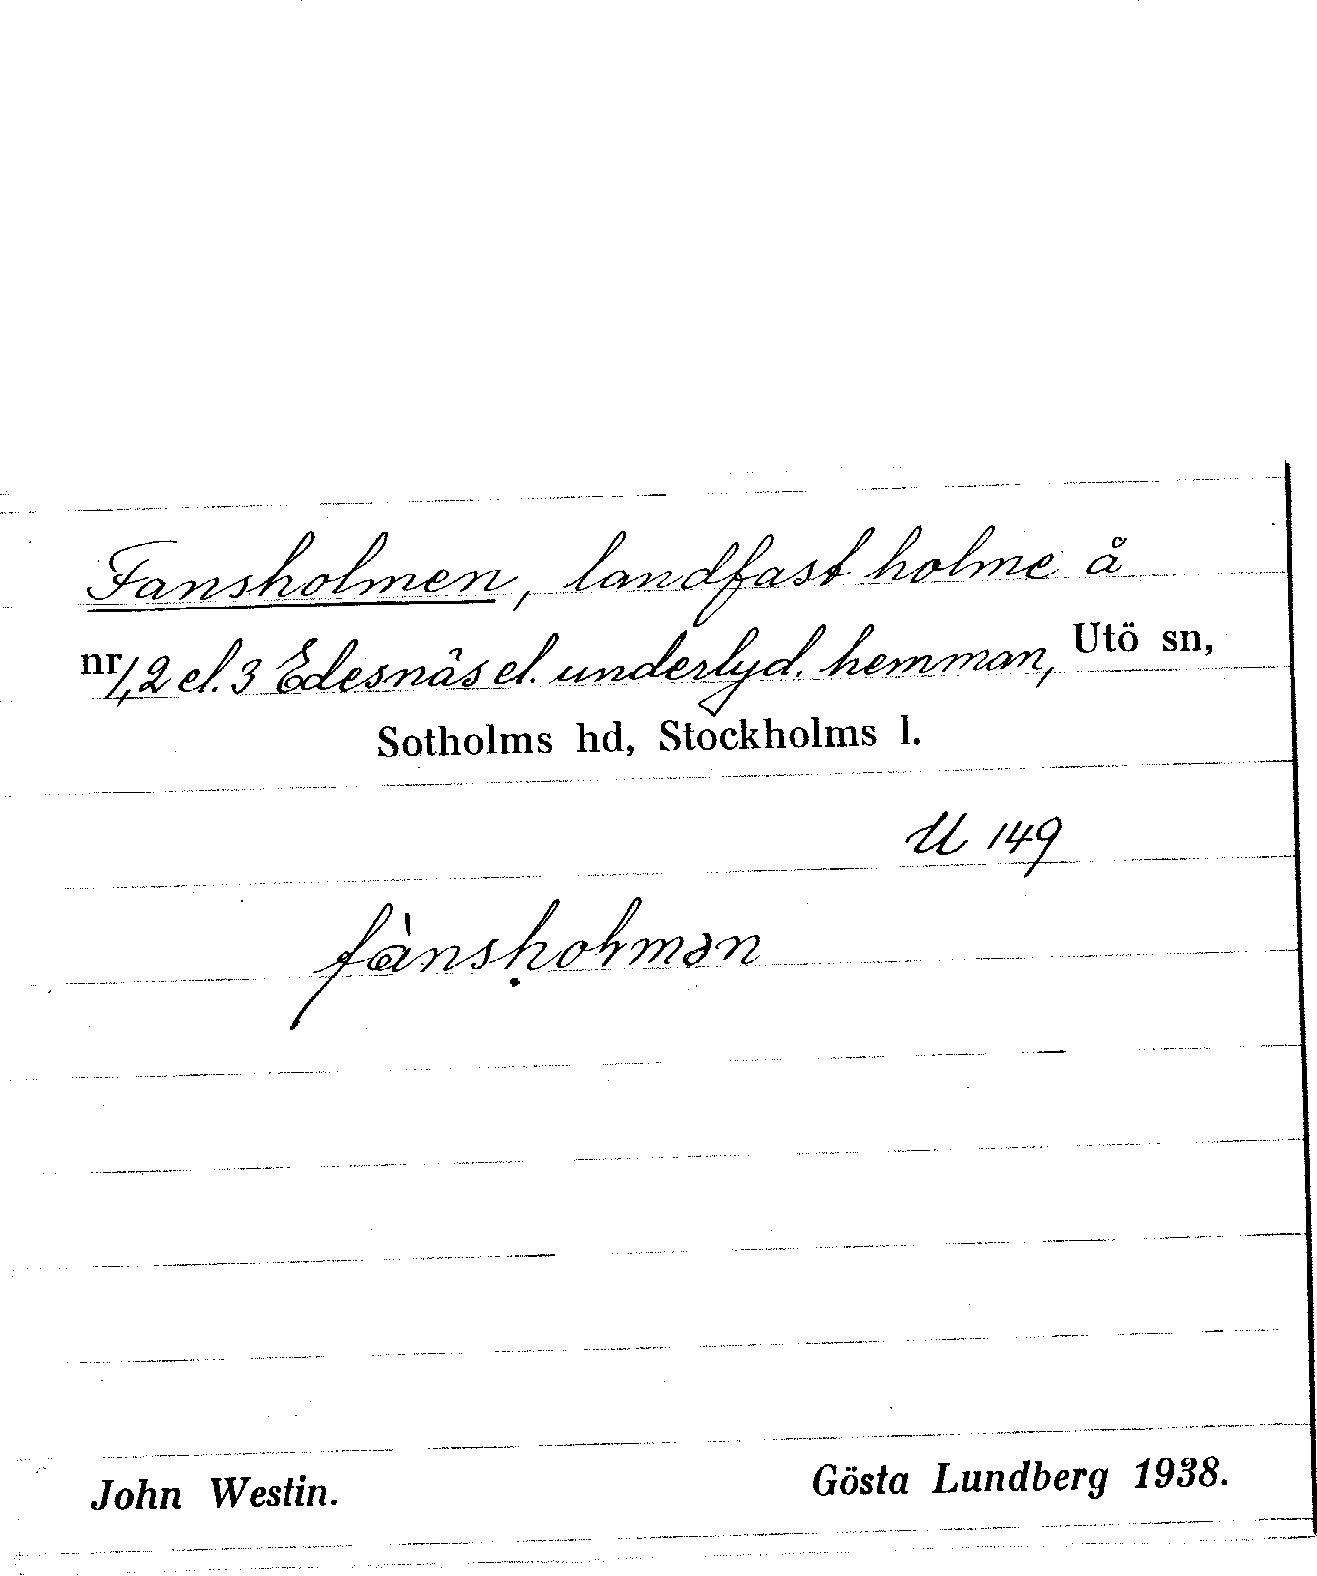 Fansholmen, landfast holme å
nr 1,2 el. 3 Edesnäs el. underlyd. hemman, Utö sn,
Sotholms hd, Stockholms l.
U 149
fànsḥoɫmən
John Westin. Gösta Lundberg 1938.